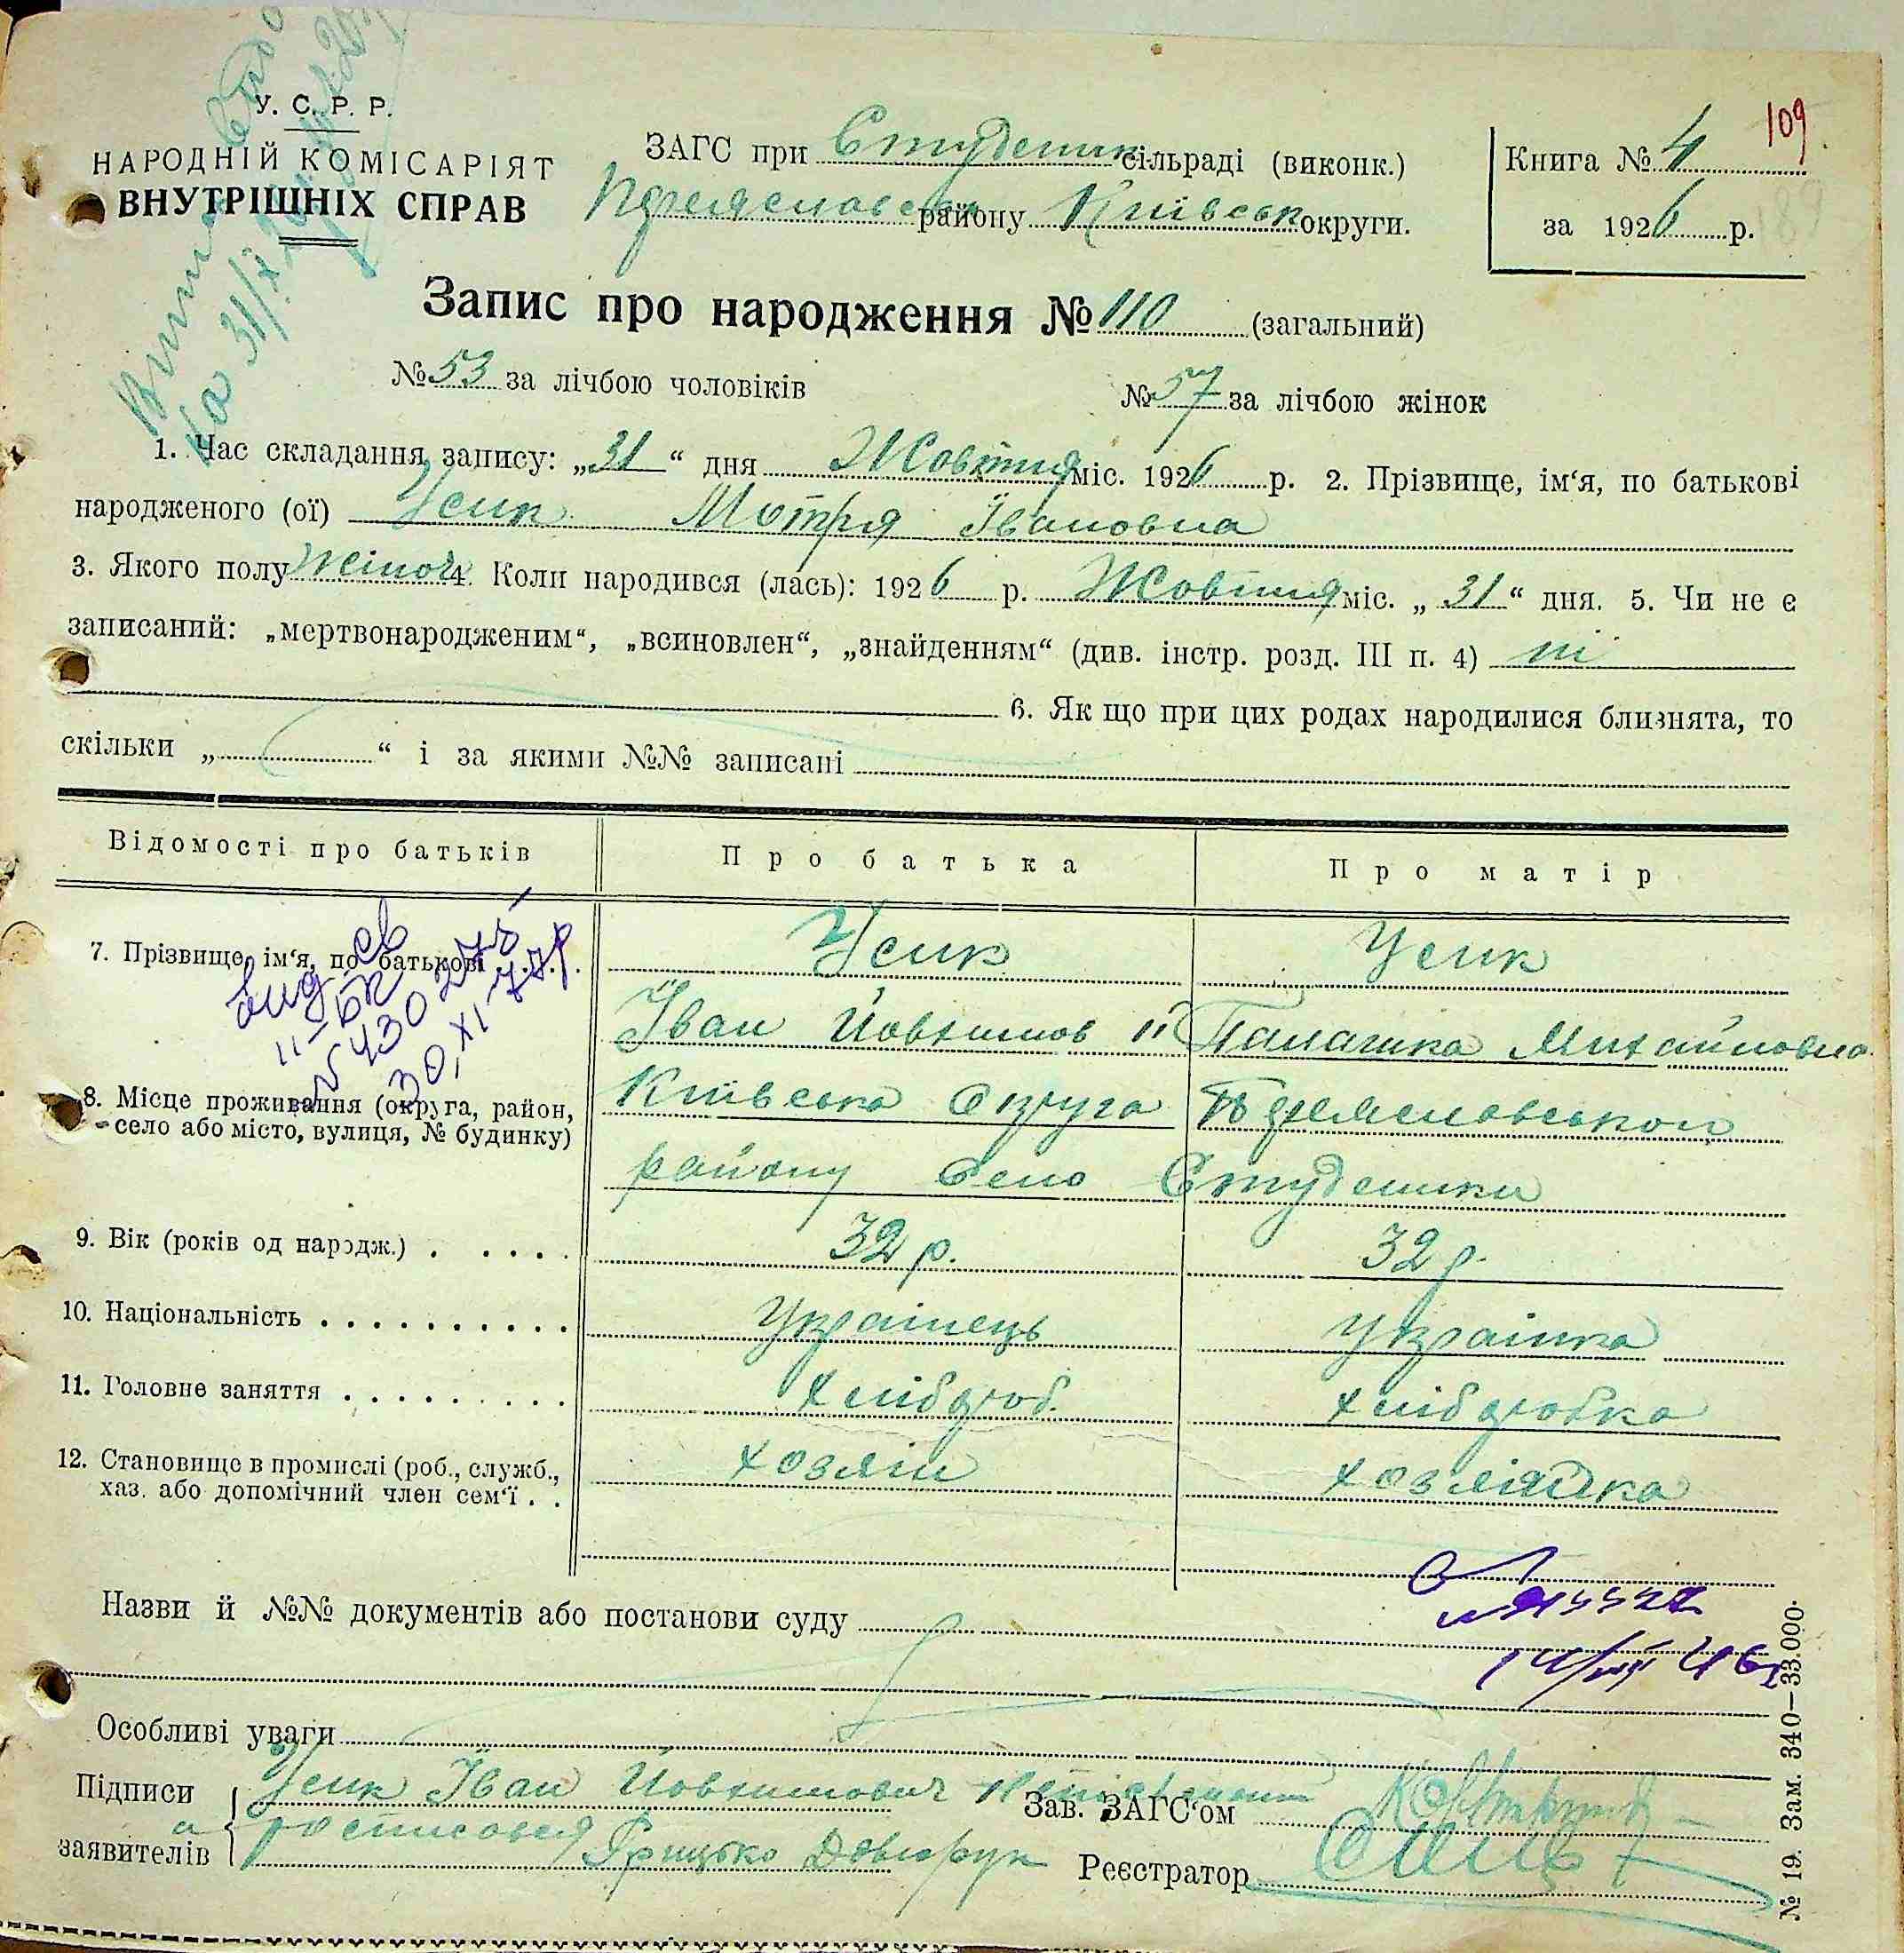 У. С. Р. Р.
НАРОДНІЙ КОМІСАРІЯТ
ВНУТРІШНІХ СПРАВ
ЗАГС при Студеник сільраді (виконк.)
району Київськ округи.
109
Книга № 4
за 1926 р.
189
Запис про народження № 110 (загальний)
№ 53 за лічбою чоловіків № 57 за лічбою жінок
на 31/X
1. Час складання запису: „31“ дня Жовтня міс. 1926 р. 2. Прізвище, ім‘я, по батькові
народженого (ої) Усик Мотря Івановна
3. Якого полу Жіноч 4. Коли народився (лась): 1926 р. Жовтня міс. „31“ дня. 5. Чи не є
записаний: „мертвонародженим“, „всиновлен“, „знайденням“ (див. інстр. розд. III п. 4) ні
6. Як що при цих родах народилися близнята, то
скільки „ “ і за якими №№ записані
Відомості про батьків Про батька Про матір
7. Прізвище, ім‘я, по батькові Усик Усик
Іван Йовхимов й Палажка Михайловна
8. Місце проживання (округа, район, Київська Округа
село або місто, вулиця, № будинку)
району Село Студеники
9. Вік (років од народж.) . . . . . 32 р. 32 р.
10. Національність . . . . . . . . . . Українець Українка
11. Головне заняття . . . . . . . . . Хлібороб. Хліборобка
12. Становище в промислі (роб., служб., Хозяїн Хозяйка
хаз. або допомічний член сем‘ї . .
вид св
№ 430
30, XI
Назви й №№ документів або постанови суду
Особливі уваги
Підписи Усик Іван Йовхимович Зав. ЗАГС‘ом
а
заявителів росписався Грицько Реєстратор
№ 19. Зам. 340—33.000.